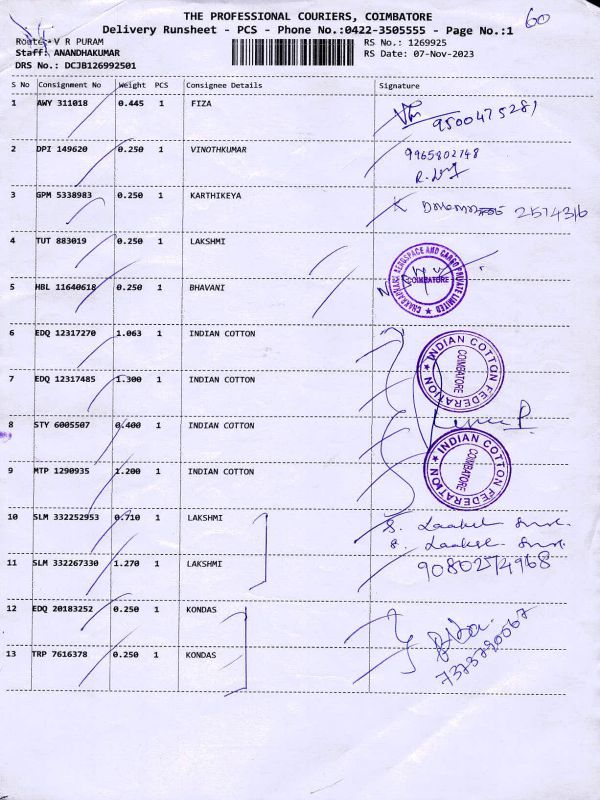 THE PROFESSIONAL COURIERS, COIMBATORE
60
Delivery Runsheet - PCS - Phone No.:0422-3505555 - Page No.:1
Route: V R PURAM
RS No.: 1269925
Staff: ANANDHAKUMAR
RS Date: 07-Nov-2023
DRS No.: DCJB126992501
S No Consignment No Weight PCS Consignee Details Signature
1 AWY 311018 0.445 1 FIZA
9500475281
2 DPI 149620 0.250 1 VINOTHKUMAR
9965802748
3 GPM 5338983 0.250 1 KARTHIKEYA
2574316
4 TUT 883019 0.250 1 LAKSHMI
CHAKRAPHANI AEROSPACE AND CARGO PRIVATE LIMITED
COIMBATORE
5 HBL 11640618 0.250 1 BHAVANI
6 EDQ 12317270 1.063 1 INDIAN COTTON
INDIAN COTTON FEDERATION
COIMBATORE
7 EDQ 12317485 1.300 1 INDIAN COTTON
8 STY 6005507 0.400 1 INDIAN COTTON
INDIAN COTTON FEDERATION
COIMBATORE
9 MTP 1290935 1.200 1 INDIAN COTTON
10 SLM 332252953 0.710 1 LAKSHMI
11 SLM 332267330 1.270 1 LAKSHMI
9080274968
12 EDQ 20183252 0.250 1 KONDAS
13 TRP 7616378 0.250 1 KONDAS
7373790567